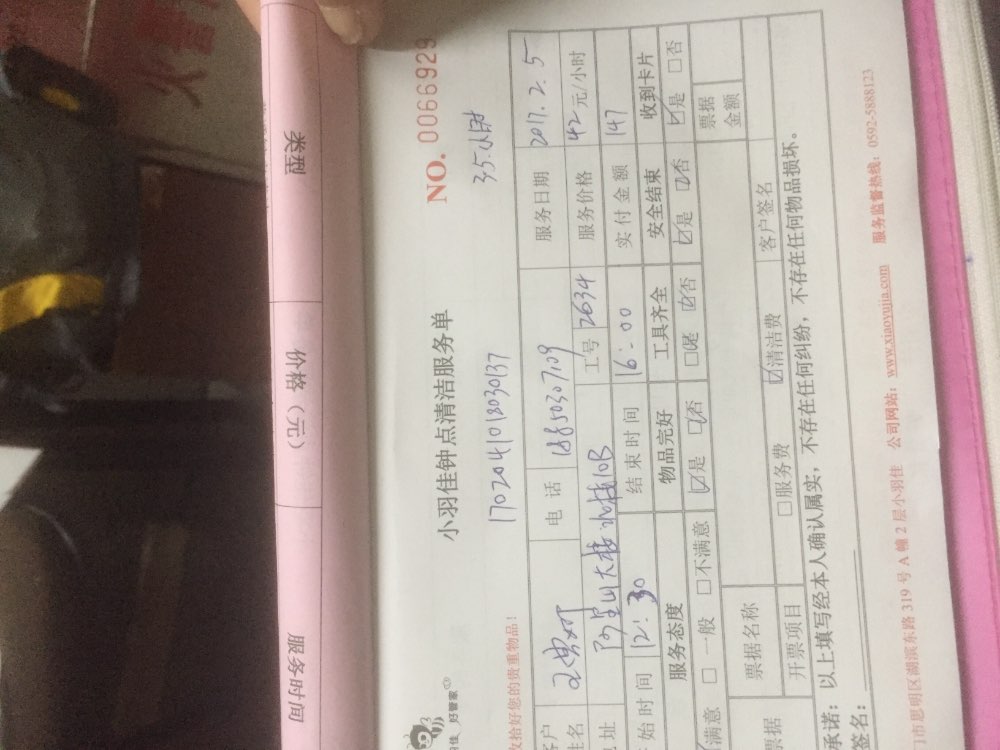 类型 价格（元） 服务时间
NO. 0066929
小羽佳钟点清洁服务单
好管家
3.5小时
1702041018030137
收拾好您的贵重物品！
客户姓名 电话 18850307109 服务日期 2017.2.5
地址 工号 2634 服务价格 42元/小时
开始时间 12:30 结束时间 16:00 实付金额 147
服务态度 物品完好 工具齐全 安全结束 收到卡片
☑满意 □一般 □不满意 ☑是 ☑否 □是 ☑否 ☑是 ☑否 ☑是 □否
票据 票据名称 票据金额
开票项目 □服务费 ☑清洁费 客户签名
承诺：以上填写经本人确认属实，不存在任何纠纷，不存在任何物品损坏。
签名：
门市思明区湖滨东路 319 号 A 幢 2 层小羽佳 公司网站：www.xiaoyujia.com 服务监督热线：0592-5888123